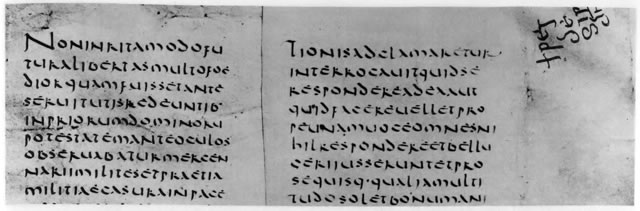 NONINRITAMODOFU
TURALIBERTASMULTOFOE
DIORQUAMFUISSETANTE
SERUITUTISREDEUNTIB
INPRIORUMDOMINORU
POTESTATEMANTEOCULOS
OBSERUABATURMERCEN
NARIIMILITESETPRAETIA
MILITIAECASURAINPACE
TIONISADCLAMARETUR
INTERROGAUITQUIDSE
RESPONDEREADEAAUT
QUIDFACEREUELLETPRO
PEUNAMUOCEOMNESNI
HILRESPONDEREETBELLU
GERIIUSSERUNTETPRO
SEQUISQ·QUALIAMULTI
TUDOSOLETBONUMANI